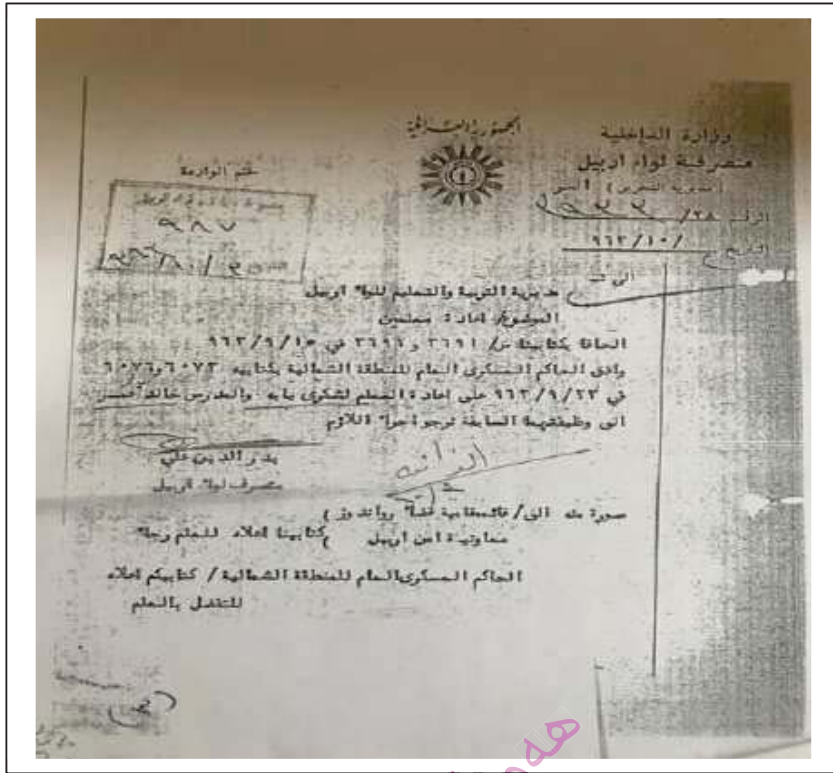 الجمهورية العراقية
وزارة الداخلية
متصرفية لواء اربيل
(مديرية التحرير) السر
الرقم / ٢٨
التاريخ / ١٠ / ٩٦٣
ختم الواردة
٩٨٧
الى
مديرية التربية والتعليم للواء اربيل
الموضوع/ اعادة معلمين
الحاقا بكتابينا س/ ٣٦٩١ و ٣٦٩٦ في ١٥/٩/٩٦٣
وافق الحاكم العسكرى العام للمنطقة الشمالية بكتابيه ٦٠٧٣ و ٦٠٧٦
في ٢٣/٩/٩٦٣ على اعادة المعلم لشكرى بابه والمدرس خالد
الى وظيفتهما السابقة نرجو اجراء اللازم
بدر الدين علي
متصرف لواء اربيل
الذاتية
صورة منه الى/ قائمقامية قضاء رواندوز
معاونية امن اربيل ) كتابينا اعلاه للعلم رجاء
الحاكم العسكرى العام للمنطقة الشمالية / كتابيكم اعلاه
للتفضل بالعلم